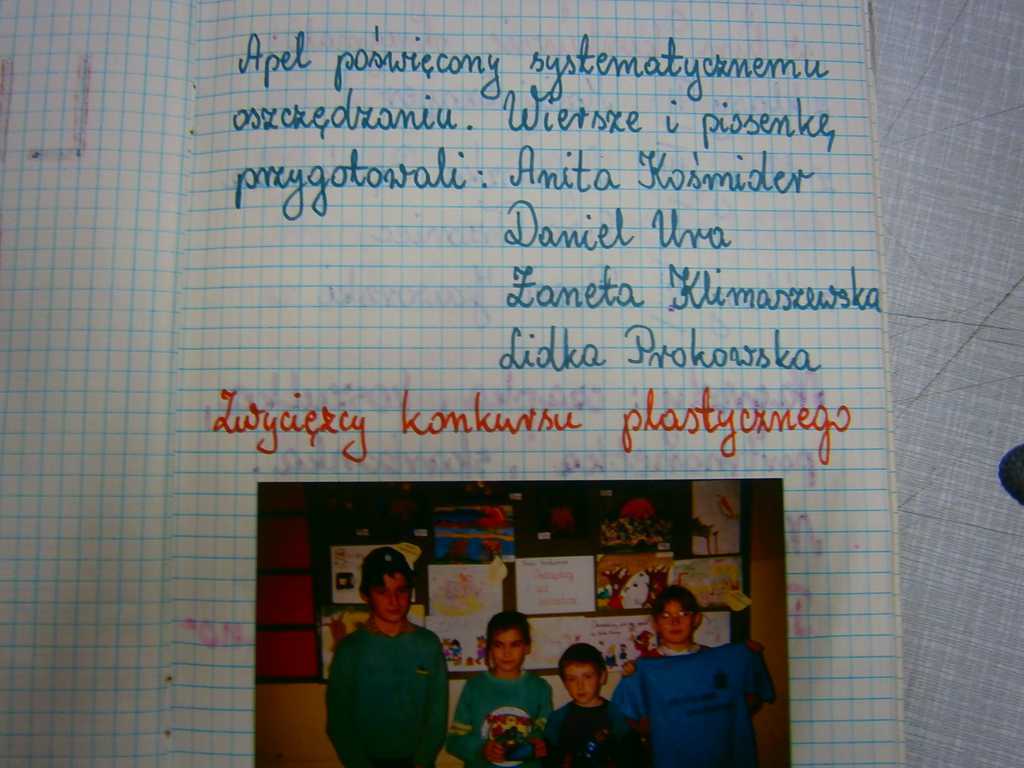 Apel poświęcony systematycznemu
oszczędzaniu. Wiersze i piosenkę
przygotowali: Anita Kośmider
Daniel Ura
Żaneta Klimaszewska
Lidka Prokowska
Zwycięzcy konkursu plastycznego